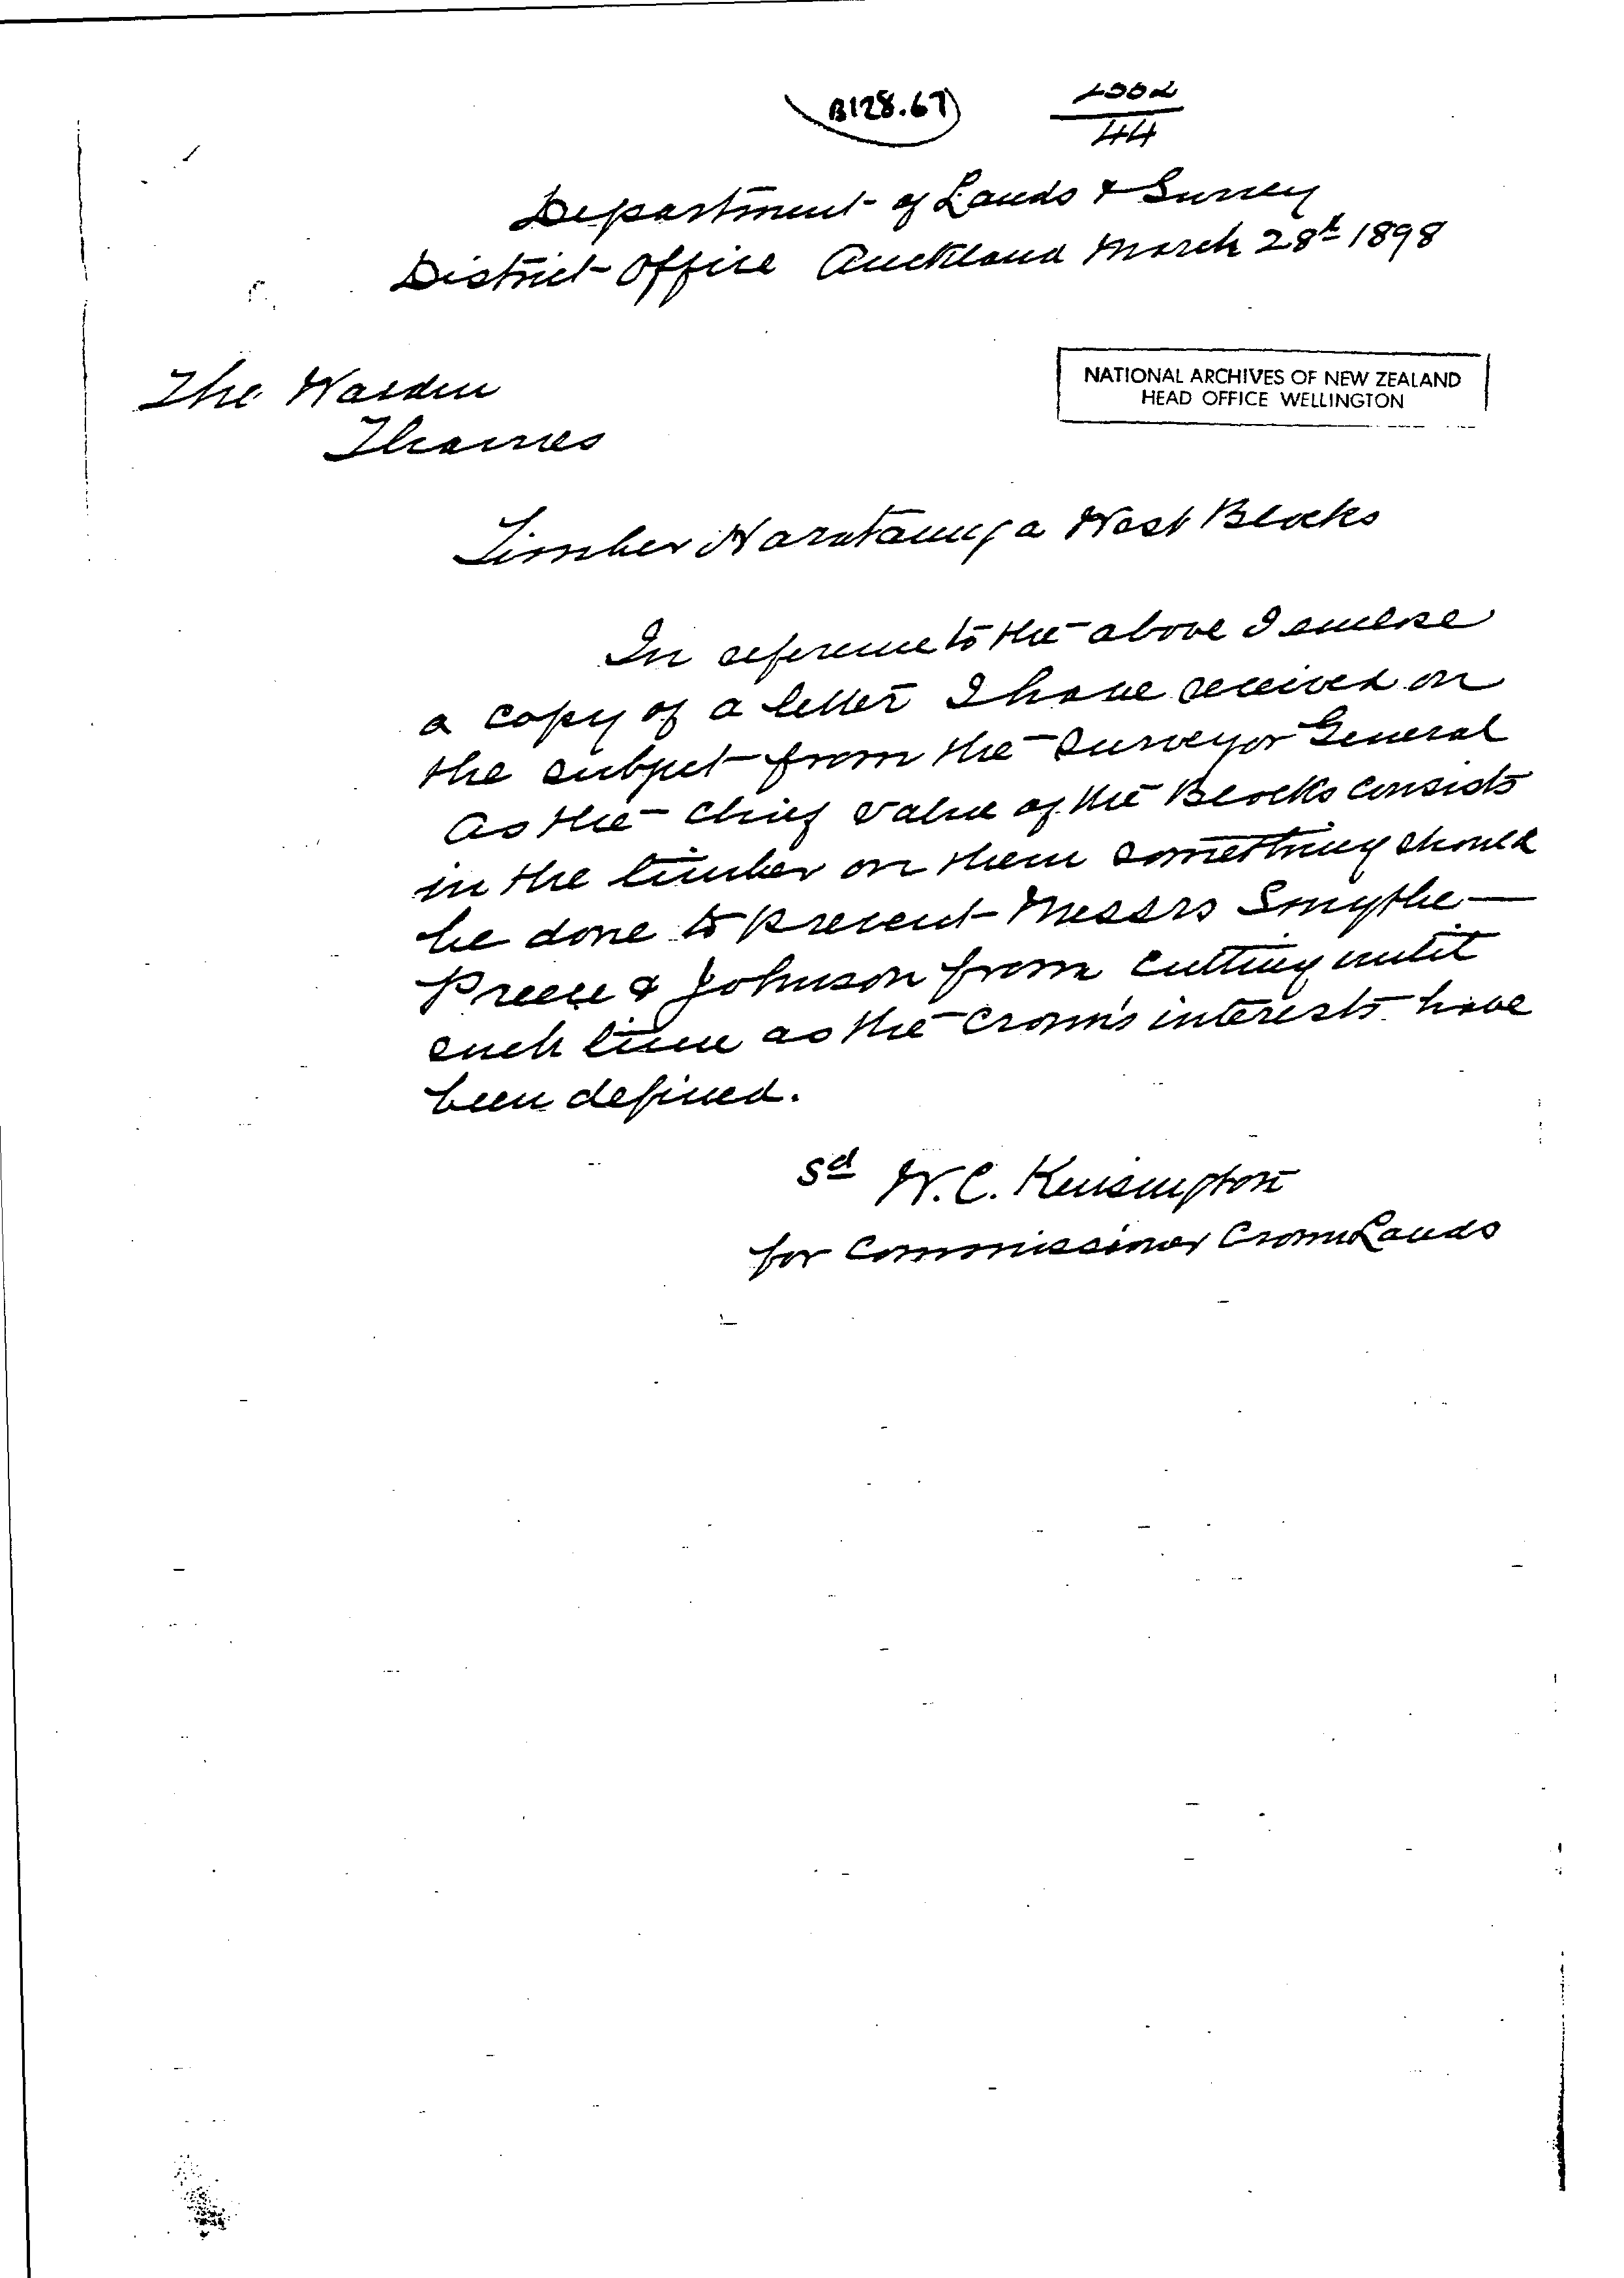 B128.67
44
Department of Lands & Survey
District Office Auckland March 28th 1898
NATIONAL ARCHIVES OF NEW ZEALAND
HEAD OFFICE WELLINGTON
The Warden
Thames
Timber Harataunga West Blocks
In reference to the above I enclose
a copy of a letter I have received on
the subject from the Surveyor General
As the chief value of the Blocks consists
in the timber on them something should
be done to prevent Messrs Smythe —
Preece & Johnson from cutting until
such time as the Crown's interests have
been defined.
Sd W. C. Kensington
for Commissioner Crown Lands